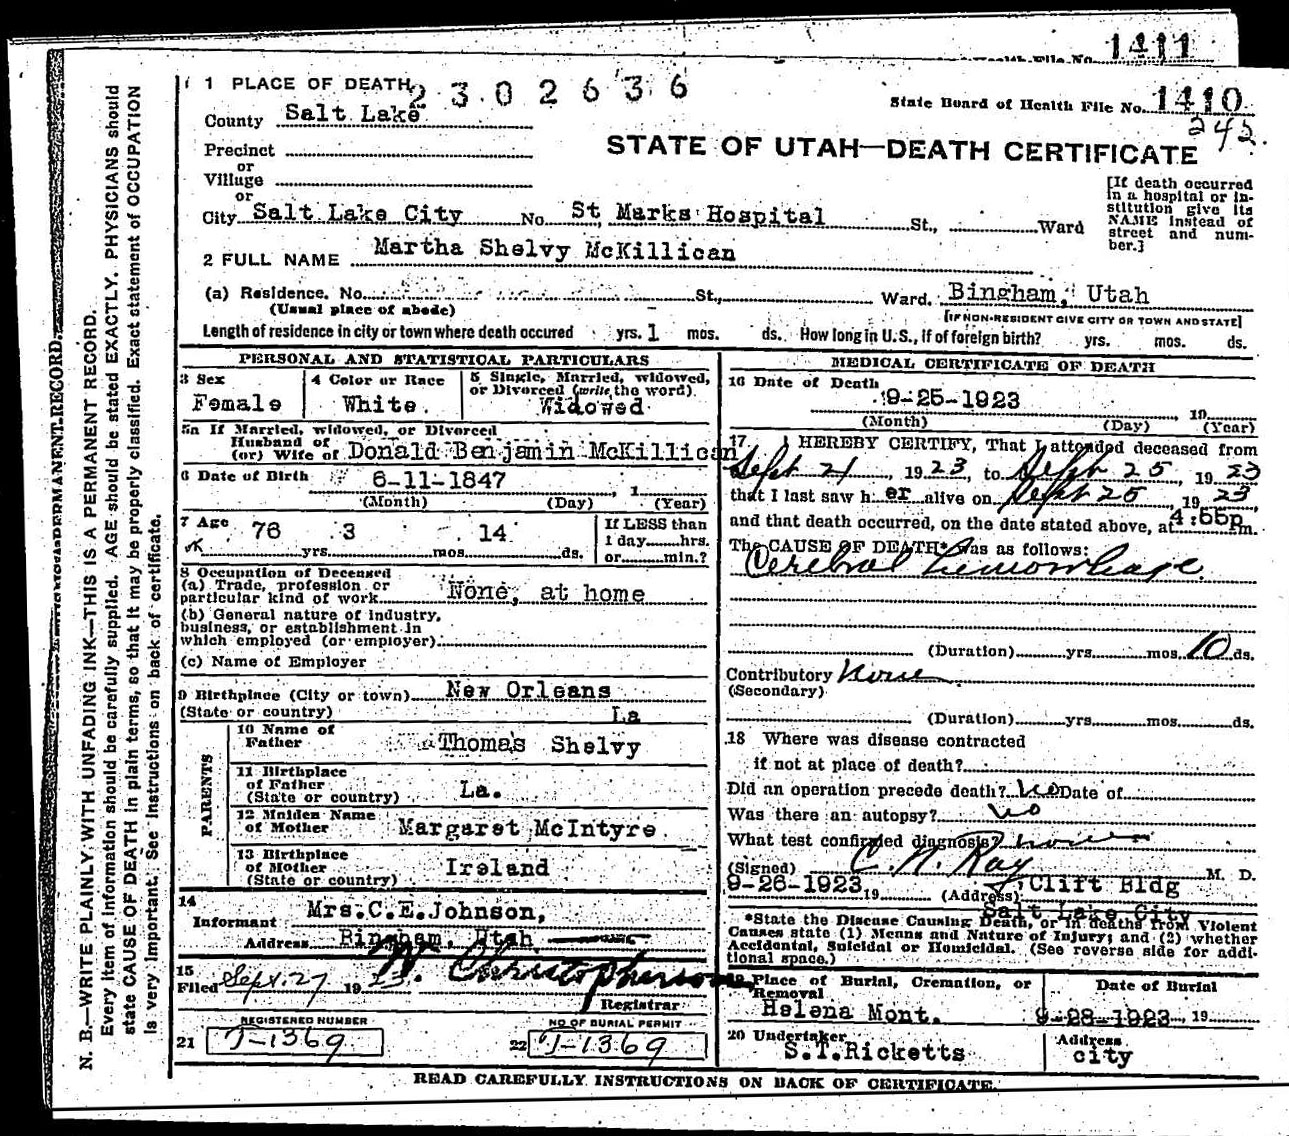 1411
Health File No.
1 PLACE OF DEATH 2302636
State Board of Health File No. 1410
242.
County Salt Lake
STATE OF UTAH—DEATH CERTIFICATE
Precinct
or
Village
or
City Salt Lake City No. St Marks Hospital St., Ward
[If death occurred
in a hospital or in-
stitution give its
NAME instead of
street and num-
ber.]
2 FULL NAME Martha Shelvy McKillican
(a) Residence. No. St., Ward. Bingham, Utah
(Usual place of abode) [IF NON-RESIDENT GIVE CITY OR TOWN AND STATE]
Length of residence in city or town where death occured yrs. 1 mos. ds. How long in U.S., if of foreign birth? yrs. mos. ds.
PERSONAL AND STATISTICAL PARTICULARS
3 Sex
Female
4 Color or Race
White.
5 Single, Married, widowed,
or Divorced (write the word)
Widowed
5a If Married, widowed, or Divorced
Husband of
(or) Wife of Donald Benjamin McKillican
6 Date of Birth 6-11-1847, 1
(Month) (Day) (Year)
7 Age 76 yrs. 3 mos. 14 ds.
If LESS than
1 day hrs.
or min.?
8 Occupation of Deceased
(a) Trade, profession or
particular kind of work None, at home
(b) General nature of industry,
business, or establishment in
which employed (or employer)
(c) Name of Employer
9 Birthplace (City or town) New Orleans
(State or country) La
PARENTS
10 Name of
Father Thomas Shelvy
11 Birthplace
of Father
(State or country) La.
12 Maiden Name
of Mother Margaret McIntyre
13 Birthplace
of Mother
(State or country) Ireland
14
Informant Mrs.C.E.Johnson,
Address Bingham, Utah
15
Filed Sept. 27 1923. W. Christopherson
Registrar
REGISTERED NUMBER
21 T-1369
NO OF BURIAL PERMIT
22 T-1369
MEDICAL CERTIFICATE OF DEATH
16 Date of Death 9-25-1923 19
(Month) (Day) (Year)
17 I HEREBY CERTIFY, That I attended deceased from
Sept 21, 1923, to Sept 25, 1923
that I last saw her alive on Sept 25 1923,
and that death occurred, on the date stated above, at 4:55p m.
The CAUSE OF DEATH* was as follows:
Cerebral hemorrhage
(Duration) yrs. mos. 10 ds.
Contributory None
(Secondary)
(Duration) yrs. mos. ds.
18 Where was disease contracted
if not at place of death?
Did an operation precede death? No Date of
Was there an autopsy? No
What test confirmed diagnosis? none
(Signed) C. N. Ray M. D.
9-26-1923 19 (Address) Clift Bldg
Salt Lake City
*State the Disease Causing Death, or in deaths from Violent
Causes state (1) Means and Nature of Injury; and (2) whether
Accidental, Suicidal or Homicidal. (See reverse side for addi-
tional space.)
19 Place of Burial, Cremation, or
Removal
Helena Mont.
Date of Burial
9-28-1923, 19
20 Undertaker
S.T.Ricketts
Address
city
READ CAREFULLY INSTRUCTIONS ON BACK OF CERTIFICATE.
N. B.—WRITE PLAINLY WITH UNFADING INK—THIS IS A PERMANENT RECORD.
Every item of information should be carefully supplied. AGE should be stated EXACTLY. PHYSICIANS should
state CAUSE OF DEATH in plain terms, so that it may be properly classified. Exact statement of OCCUPATION
is very important. See instructions on back of certificate.
PERMANENT RECORD.